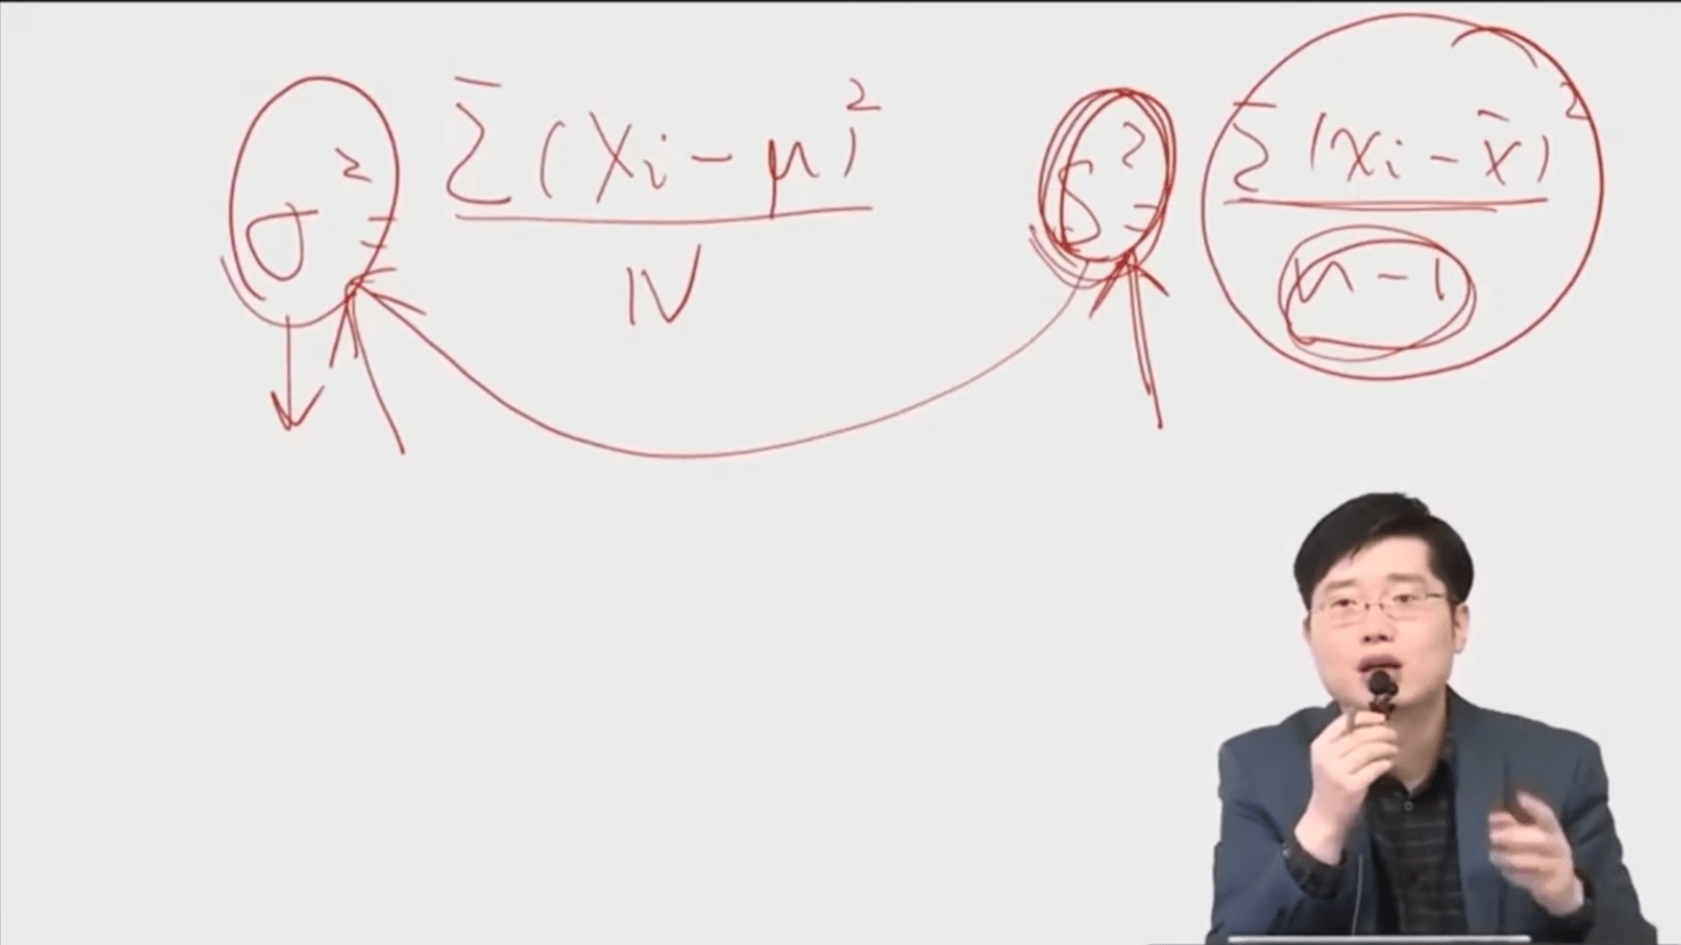 σ² = Σ(Xi - μ)² / N
S² = Σ(xi - x̄)² / n - 1